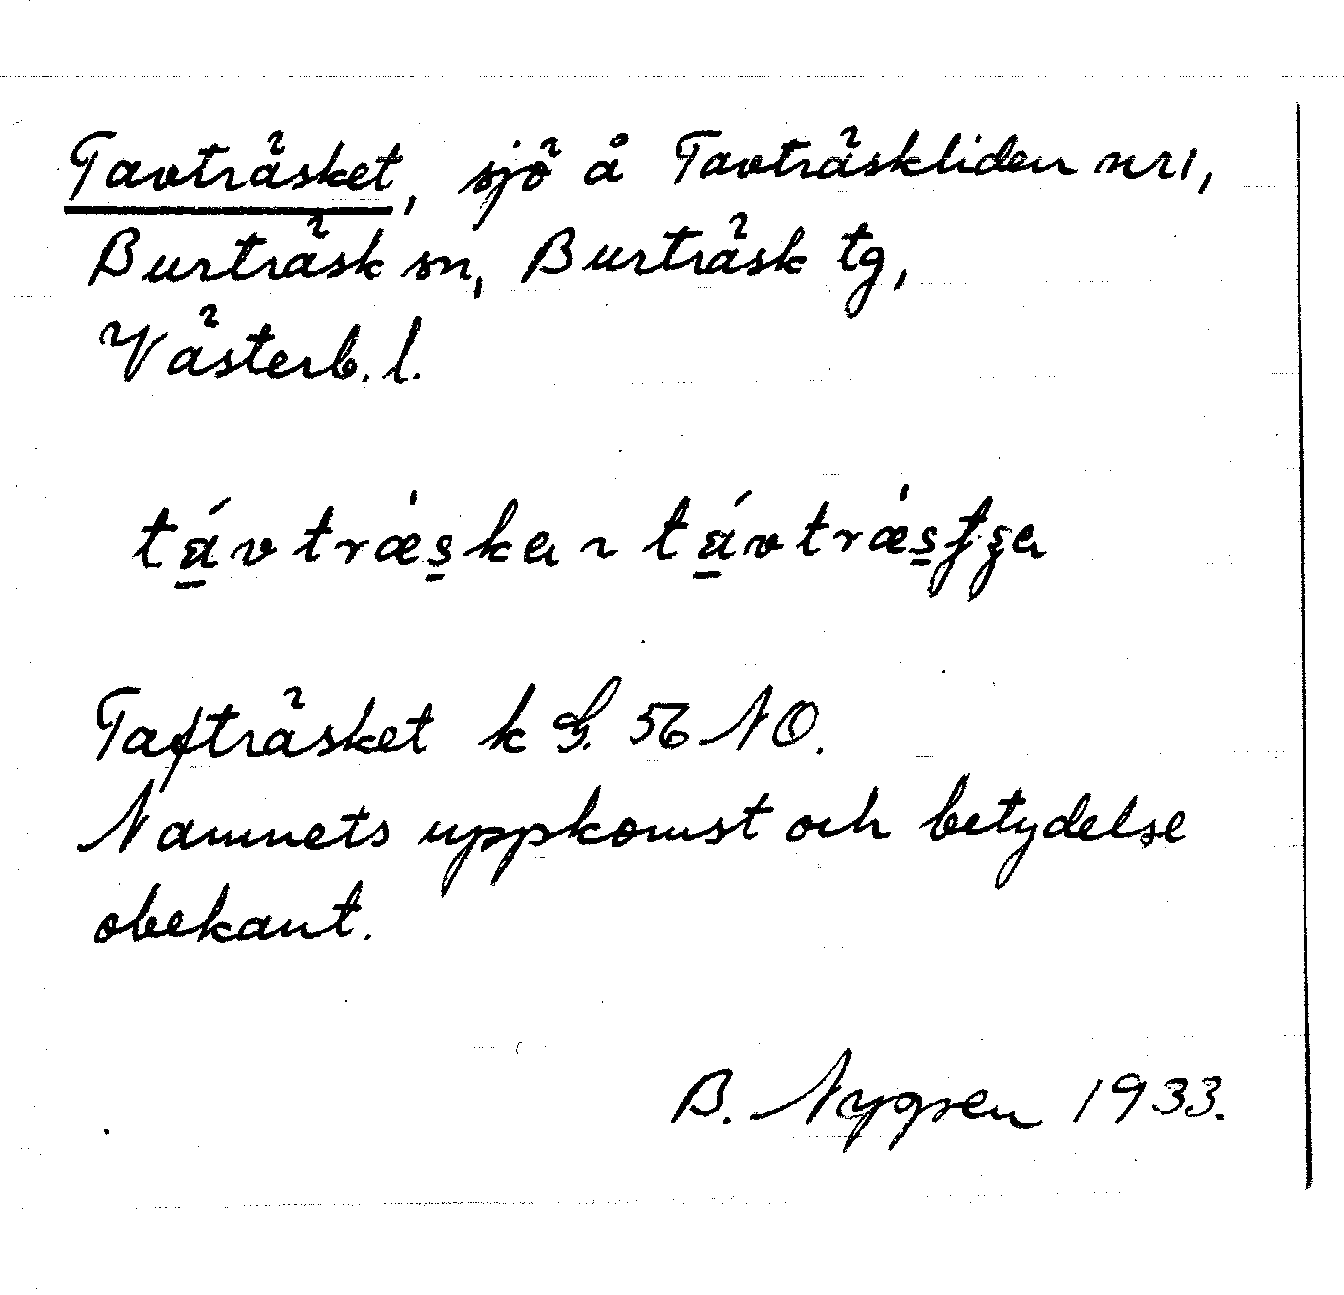 Tavträsket, sjö å Tavträskliden nr 1,
Burträsk sn, Burträsk tg,
Västerb. l.
Tafträsket k G. 56 NO.
Namnets uppkomst och betydelse
obekant.
B. Nygren 1933.